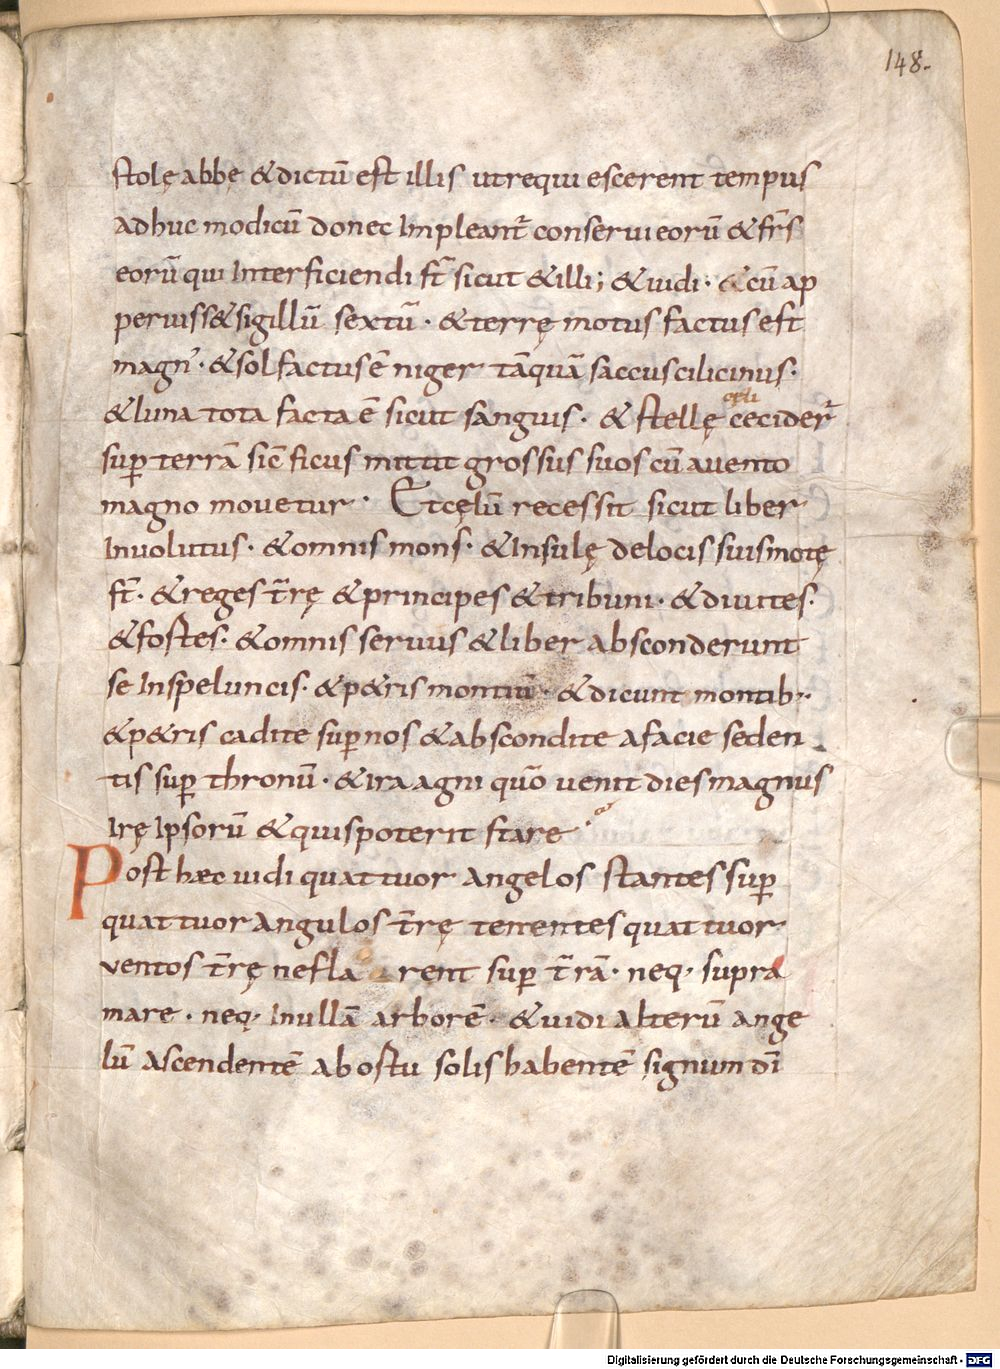 148.
stolę abbę & dictū est illis ut requiuescerent tempus
adhuc modicū donec Impleant̄ conserui eorū & frs̄
eorū qui Interficiendi st̄ sicut & illi; & uidi · & cū ap
peruiss& sigillū sextū · & terrę motus factus est
magn' · & sol factus ē niger tāquā saccus cilicinus ·
& luna tota facta ē sicut sanguis · & stellę cęli cecider̄
sup̄ terrā sic̄ ficus mittit grossus suos cū a uento
magno mouetur · Et cęlū recessit sicut liber
Inuolutus · & omnis mons · & Insulę de locis suis motę
st̄ · & reges t̄rę & principes & tribuni · & diuites ·
& fostes · & omnis seruus & liber absconderunt
se In speluncis · & p&ris montiū · & dicunt montib; ·
& p&ris cadite sup̄ nos & abscondite a facie seden
tis sup̄ thronū · & ira agni quō uenit dies magnus
Irę Ipsorū & quis poterit stare ·
Post haec uidi quattuor angelos stantes sup̄
quattuor angulos t̄rę tenentes quattuor ·
ventos t̄rę ne fla rent sup̄ t̄rā · neq; supra
mare · neq; In ullā arborē · & uidi alterū ange
lū ascendentē ab ostu solis habentē signum dī
Digitalisierung gefördert durch die Deutsche Forschungsgemeinschaft - DFG